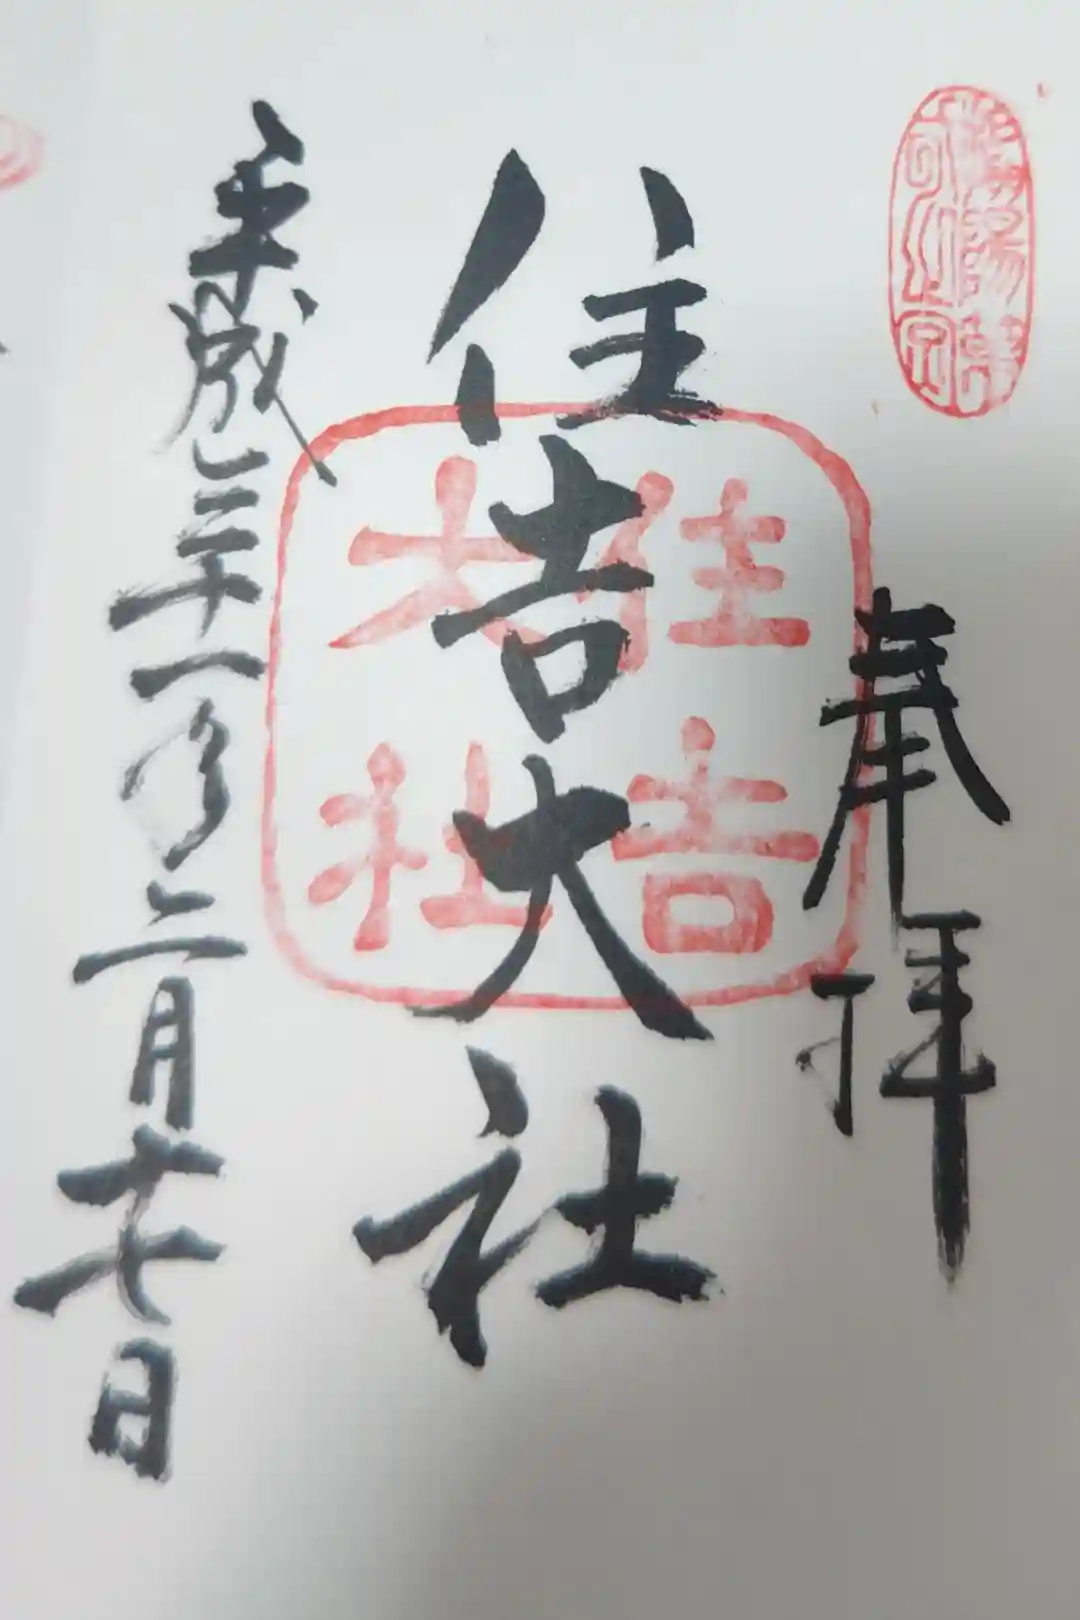 奉拝
住吉大社
住吉大社
平成三十一年二月十七日